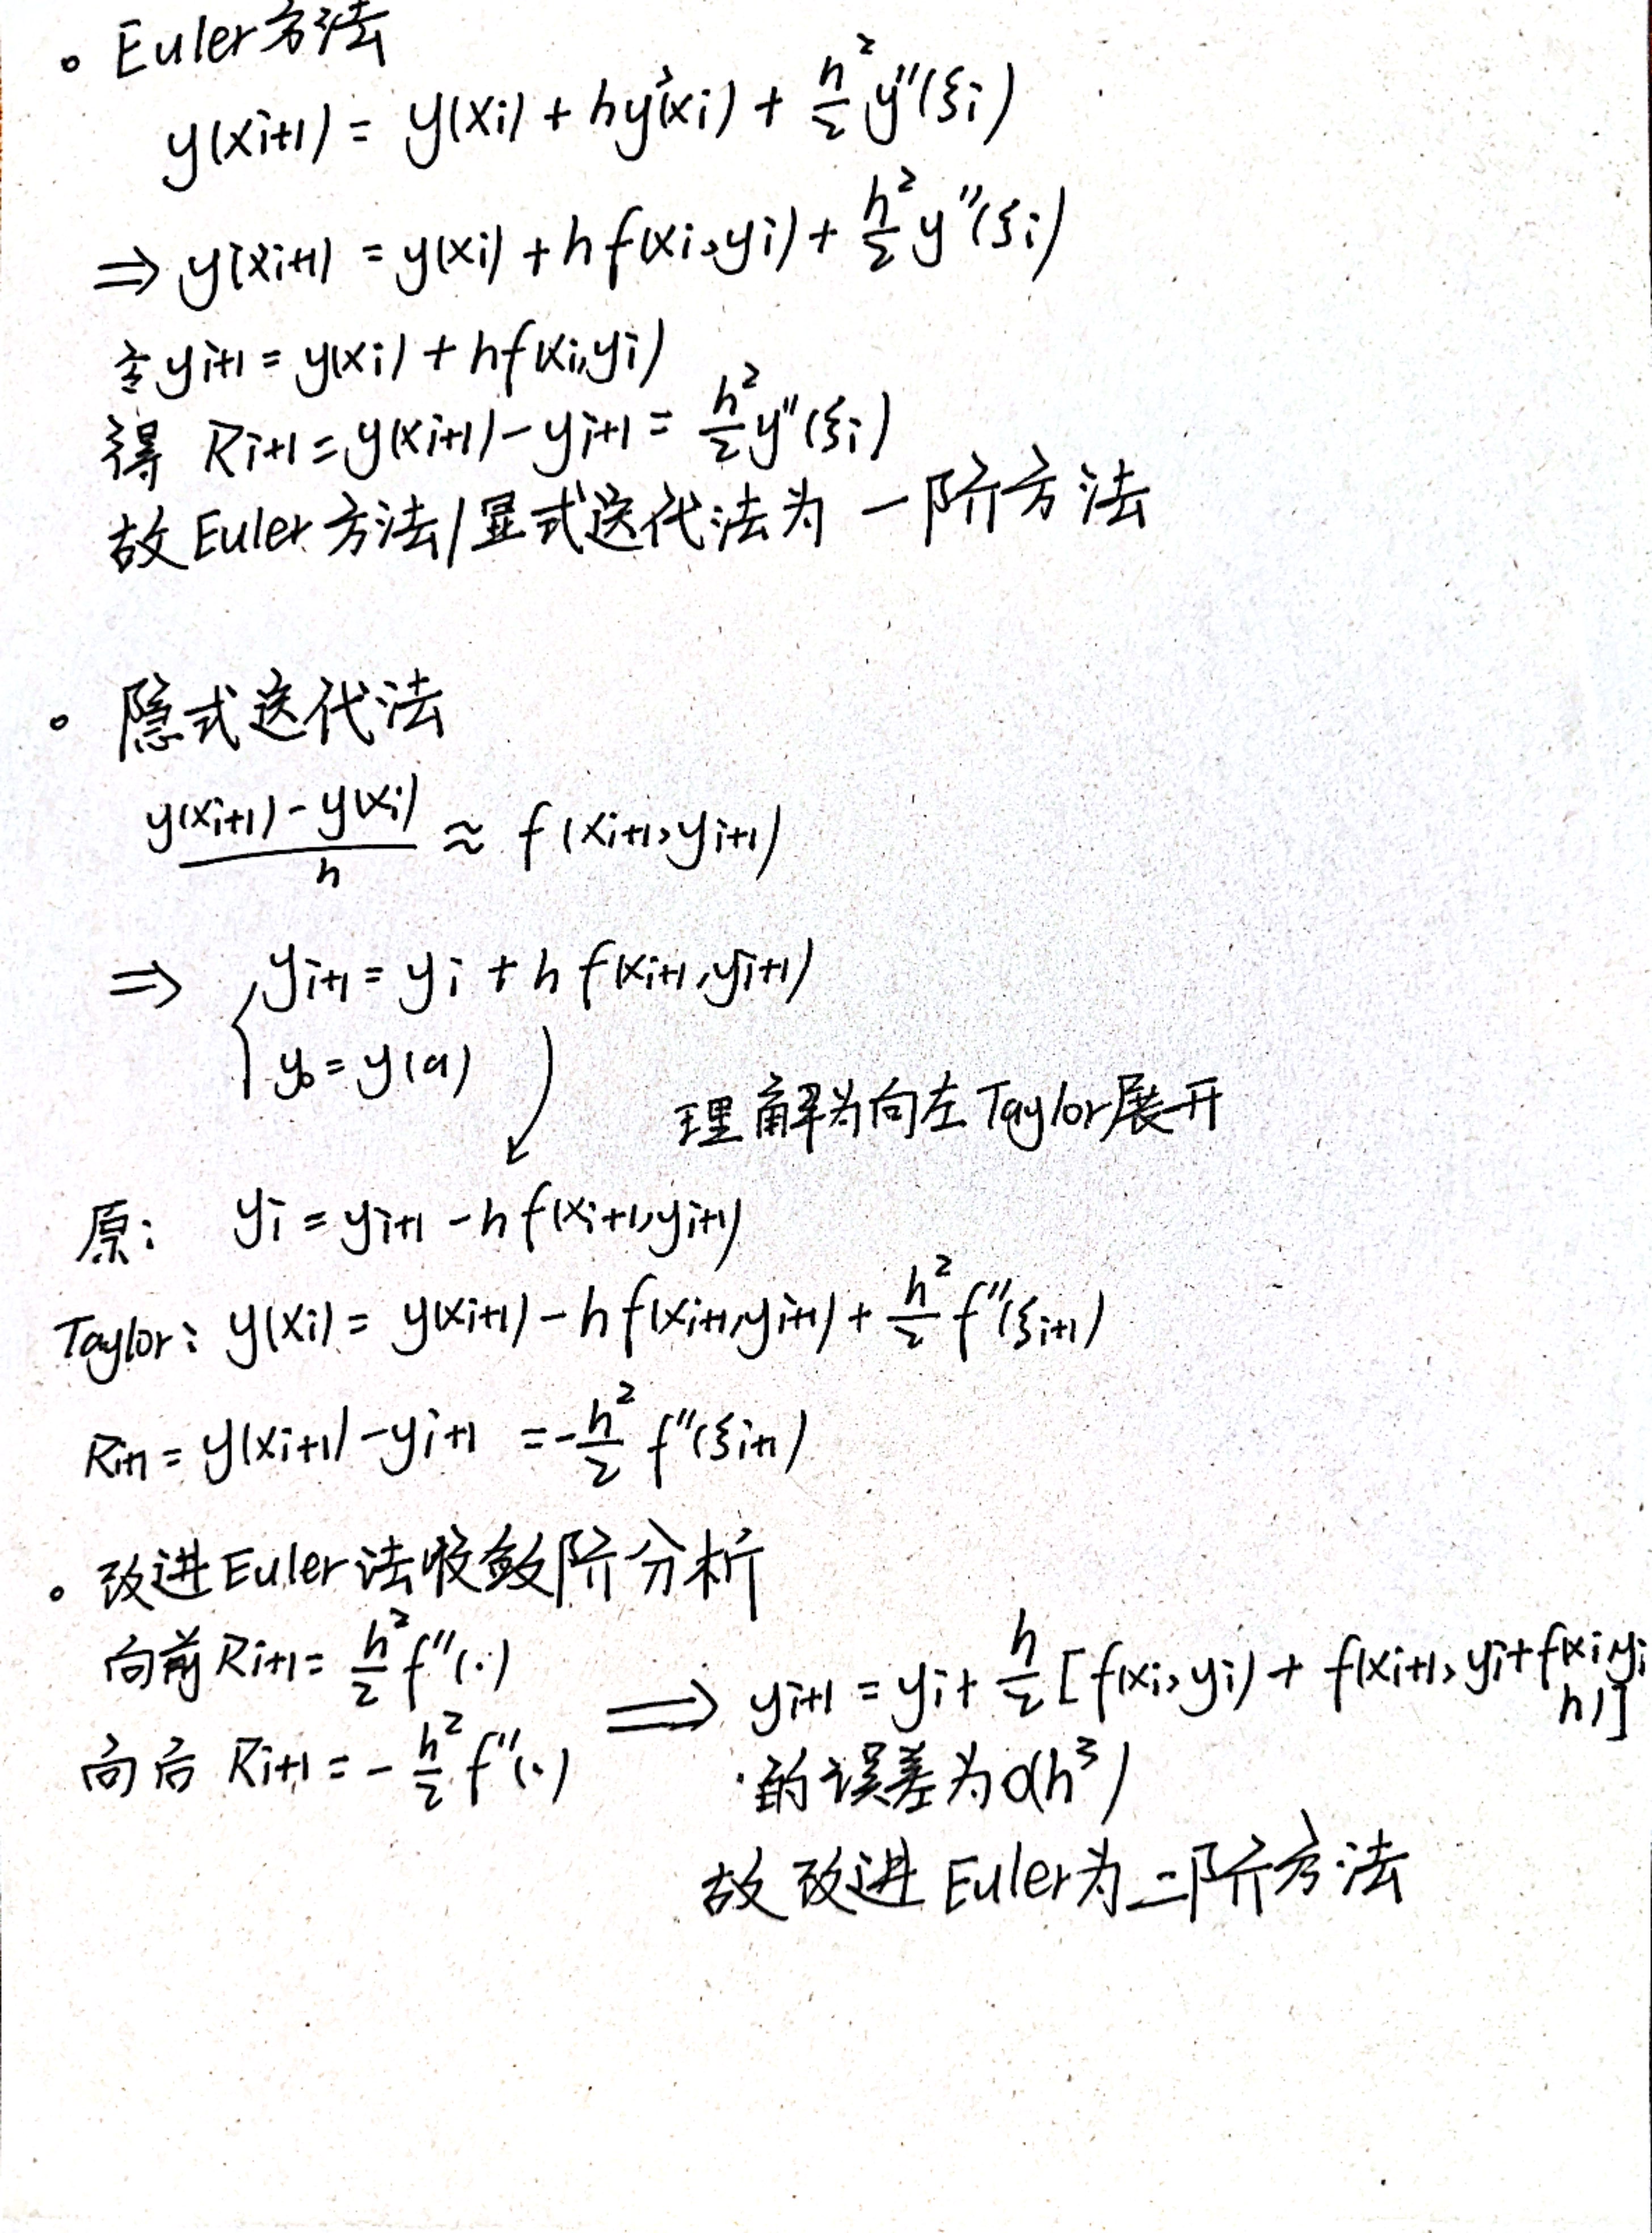 。Euler方法
y(xi+1) = y(xi) + hy'(xi) + h²/2 y''(ξi)
⇒ y(xi+1) = y(xi) + h f(xi,yi) + h²/2 y''(ξi)
令 yi+1 = y(xi) + hf(xi,yi)
得 Ri+1 = y(xi+1) - yi+1 = h²/2 y''(ξi)
故Euler方法/显式迭代法为一阶方法
。隐式迭代法
(y(xi+1) - y(xi))/h ≈ f(xi+1,yi+1)
⇒ { yi+1 = yi + h f(xi+1,yi+1)
y0 = y(a)
理解为向左Taylor展开
原: yi = yi+1 - hf(xi+1,yi+1)
Taylor: y(xi) = y(xi+1) - hf(xi+1,yi+1) + h²/2 f''(ξi+1)
Ri+1 = y(xi+1) - yi+1 = -h²/2 f''(ξi+1)
。改进Euler法收敛阶分析
向前 Ri+1 = h²/2 f''(·)
向后 Ri+1 = -h²/2 f''(·)
⇒ yi+1 = yi + h/2 [f(xi,yi) + f(xi+1, yi+f(xi,yi
h)]
的误差为O(h³)
故改进Euler为二阶方法